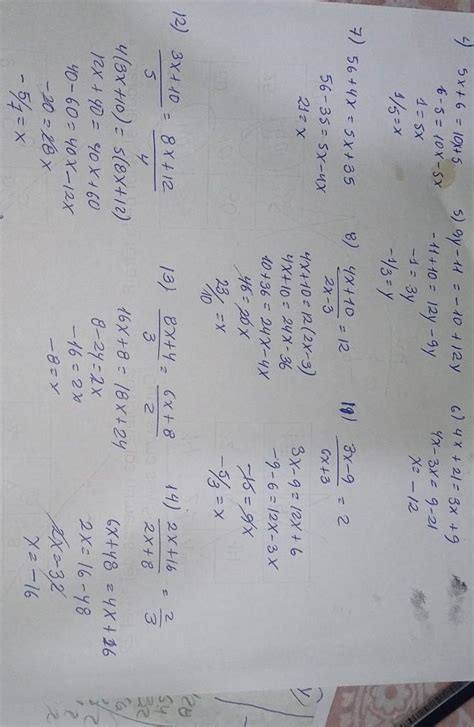 4) 5x+6 = 10+5
6-5 = 10x-5x
1 = 5x
1/5 = x
5) 9y-11 = -10+12y
-11+10 = 12y-9y
-1 = 3y
-1/3 = y
6) 4x+21 = 3x+9
4x-3x = 9-21
x = -12
7) 56+4x = 5x+35
56-35 = 5x-4x
21 = x
8) 4x+10 = 12
2x-3
4x+10 = 12(2x-3)
4x+10 = 24x-36
10+36 = 24x-4x
46 = 20x
23 = x
10
3x-9 = 2
6x+3
3x-9 = 12x+6
-9-6 = 12x-3x
-15 = 9x
-5/3 = x
12) 3x+10 = 8x+12
5 4
4(3x+10) = 5(8x+12)
12x+40 = 40x+60
40-60 = 40x-12x
-20 = 28x
-5/7 = x
13) 8x+4 = 6x+8
3 2
16x+8 = 18x+24
8-24 = 2x
-16 = 2x
-8 = x
14) 2x+16 = 2
2x+8 3
6x+48 = 4x+16
2x = 16-48
2x = -32
x = -16